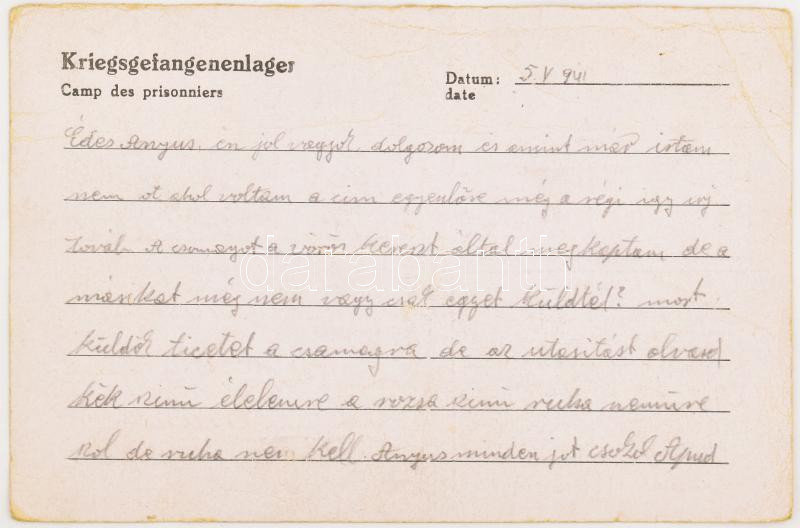 Kriegsgefangenenlager
Camp des prisonniers
Datum: 5. V 941
date
Édes Anyus, én jol vagyok dolgozom és amint már irtam
nem ot ahol voltam a cim egyenlöre még a régi igy irj
továb. A csomagot a vörös kereszt által megkaptam de a
másikat még nem vagy csak egyet küldtél? most
küldök ticetet a csamagra de az utasitást olvasd
kék szinü élelemre a rozsa szinü ruha nemüre
szol de ruha nem kell. Anyus minden jot csokol Apud
darabanth